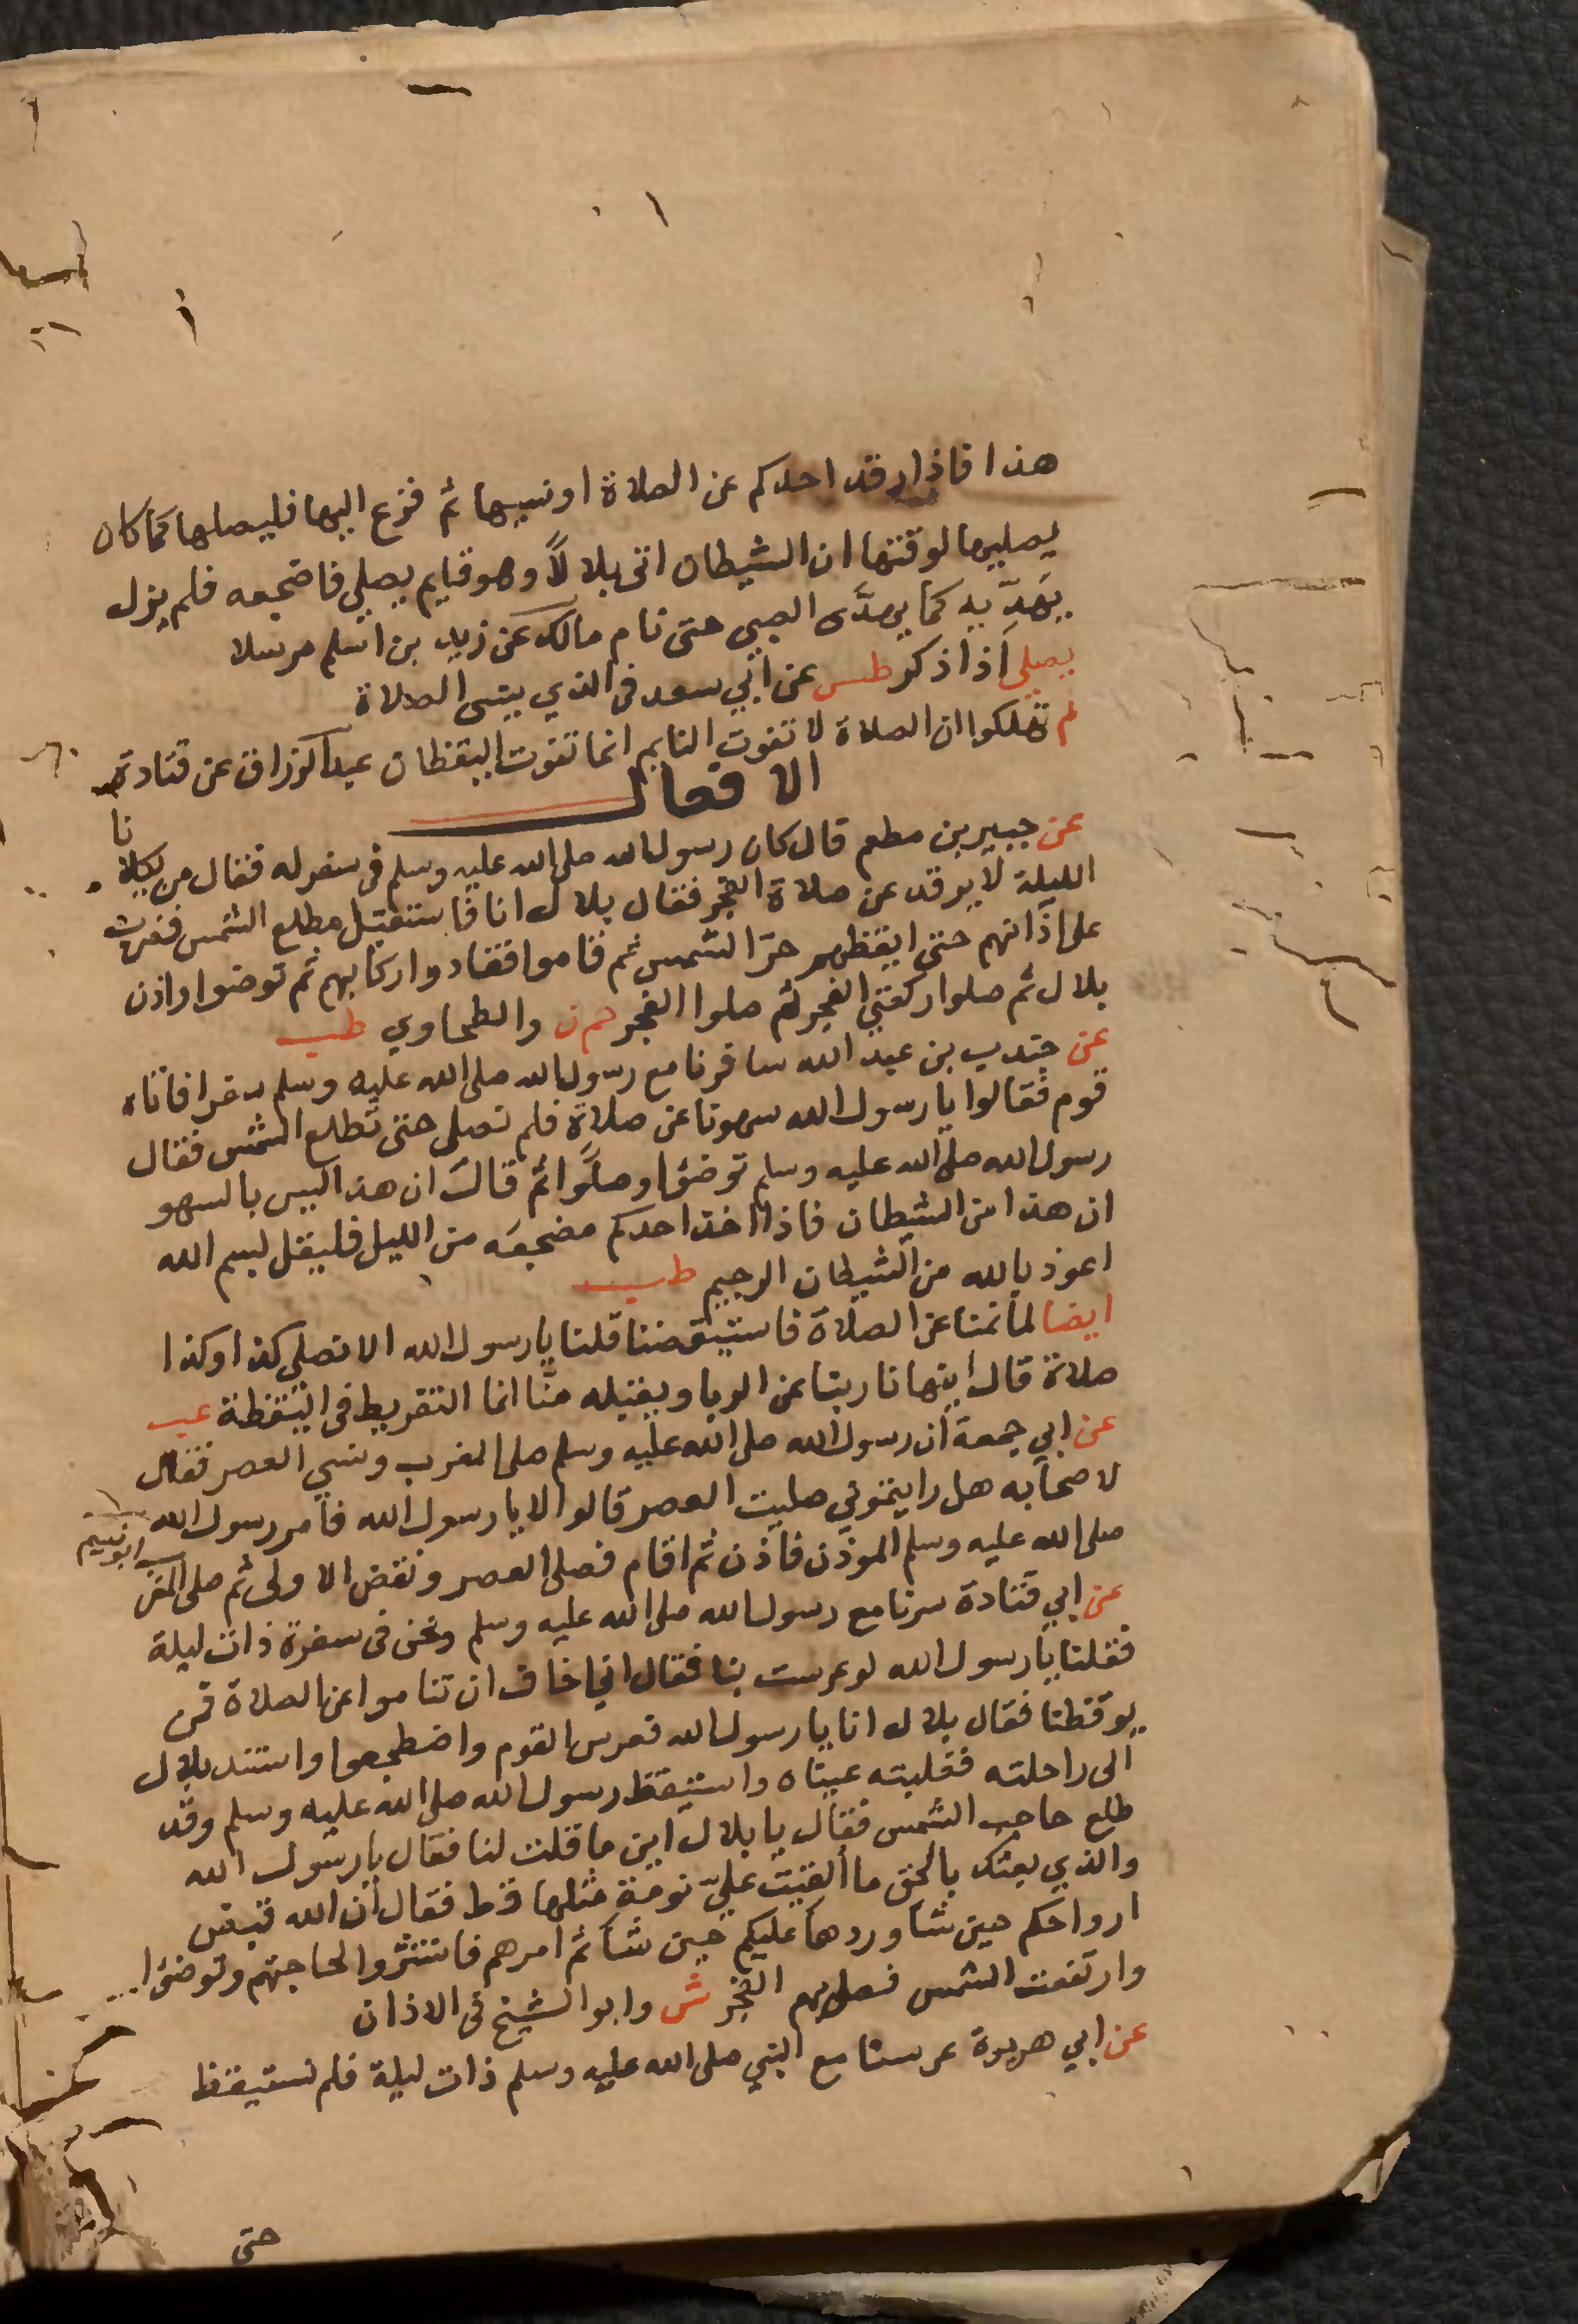 هذا فاذا رقد احدكم عن الصلاة او نسيها ثم فزع اليها فليصلها كما كان
يصليها لوقتها ان الشيطان اتى بلالاً وهو قايم يصلي فاضجعه فلم يزل
يهدّيه كما يهدّى الصبي حتى نام مالك عن زيد بن اسلم مرسلا
يصلي اذا ذكر طس عن ابي سعد في الذي ينسى الصلاة
لم تهلكوا ان الصلاة لا تفوت النايم انما تفوت اليقظان عبد الرزاق عن قتادة
الافعال
عن جبير بن مطعم قال كان رسول الله صلى الله عليه وسلم في سفر له فقال من يكلانا
الليلة لا يرقد عن صلاة الفجر فقال بلال انا فاستقبل مطلع الشمس فضرب
على اذانهم حتى ايقظهم حرّ الشمس ثم قاموا فقادوا ركابهم ثم توضوا واذن
بلال ثم صلوا ركعتي الفجر ثم صلوا الفجر حم ن والطحاوي طب
عن جندب بن عبد الله سافرنا مع رسول الله صلى الله عليه وسلم سفرا فاتاه
قوم فقالوا يا رسول الله سهونا عن صلاة فلم نصلي حتى تطلع الشمس فقال
رسول الله صلى الله عليه وسلم توضؤا وصلّوا ثم قال ان هذا ليس بالسهو
ان هذا من الشيطان فاذا اخذ احدكم مضجعه من الليل فليقل بسم الله
اعوذ بالله من الشيطان الرجيم طب
ايضا لما نمنا عن الصلاة فاستيقضنا قلنا يا رسول الله الا نصلي كذا وكذا
صلاة قال اينهانا ربنا عن الربا ويقبله منّا انما التفريط في اليقظة عب
عن ابي جمعة ان رسول الله صلى الله عليه وسلم صلى المغرب ونسي العصر فقال
لاصحابه هل رايتموني صليت العصر قالوا لا يا رسول الله فامر رسول الله
صلى الله عليه وسلم الموذن فاذن ثم اقام فصلى العصر ونقض الاولى ثم صلى المغرب ابو نعيم
عن ابي قتادة سرنا مع رسول الله صلى الله عليه وسلم ونحن في سفرة ذات ليلة
فقلنا يا رسول الله لو عرست بنا فقال اني اخاف ان تناموا عن الصلاة فمن
يوقظنا فقال بلال انا يا رسول الله فعرس القوم واضطجعوا واستند بلال
الى راحلته فغلبته عيناه واستيقظ رسول الله صلى الله عليه وسلم وقد
طلع حاجب الشمس فقال يا بلال اين ما قلت لنا فقال يا رسول الله
والذي بعثك بالحق ما ألقيت عليّ نومة مثلها قط فقال ان الله قبض
ارواحكم حين شا وردها عليكم حين شا ثم امرهم فانتشروا لحاجتهم وتوضؤا
وارتفعت الشمس فصلى بهم الفجر ش وابو الشيخ في الاذان
عن ابي هريرة عرسنا مع النبي صلى الله عليه وسلم ذات ليلة فلم نستيقظ
حتى